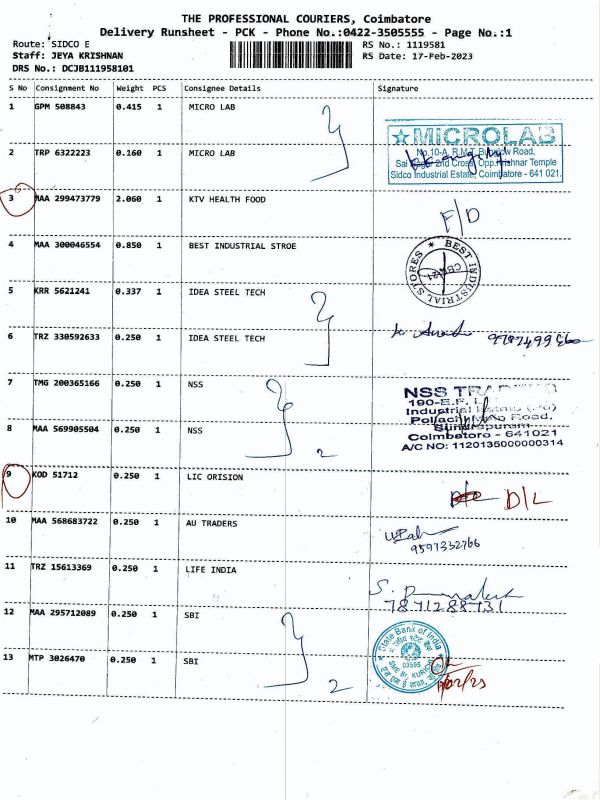 THE PROFESSIONAL COURIERS, Coimbatore
Delivery Runsheet - PCK - Phone No.:0422-3505555 - Page No.:1
Route: SIDCO E
RS No.: 1119581
Staff: JEYA KRISHNAN
RS Date: 17-Feb-2023
DRS No.: DCJB111958101
S No Consignment No Weight PCS Consignee Details Signature
1 GPM 508843 0.415 1 MICRO LAB
MiCROLAB
No.10-A, R.M.T. Bungalow Road,
2nd Cross, Opp. Krishnar Temple
Sidco Industrial Estate, Coimbatore - 641 021.
2 TRP 6322223 0.160 1 MICRO LAB
3 MAA 299473779 2.060 1 KTV HEALTH FOOD
F/D
4 MAA 300046554 0.850 1 BEST INDUSTRIAL STROE
BEST INDUSTRIAL STORES
5 KRR 5621241 0.337 1 IDEA STEEL TECH
6 TRZ 330592633 0.250 1 IDEA STEEL TECH
7 TMG 200365166 0.250 1 NSS
NSS
Industrial
Road,
Coimbatore - 641021
A/C NO: 1120135000000314
8 MAA 569905504 0.250 1 NSS
2
9 KOD 51712 0.250 1 LIC ORISION
D/L
10 MAA 568683722 0.250 1 AU TRADERS
9597332766
11 TRZ 15613369 0.250 1 LIFE INDIA
7871288731
12 MAA 295712089 0.250 1 SBI
State Bank of India
03596
13 MTP 3026470 0.250 1 SBI
2